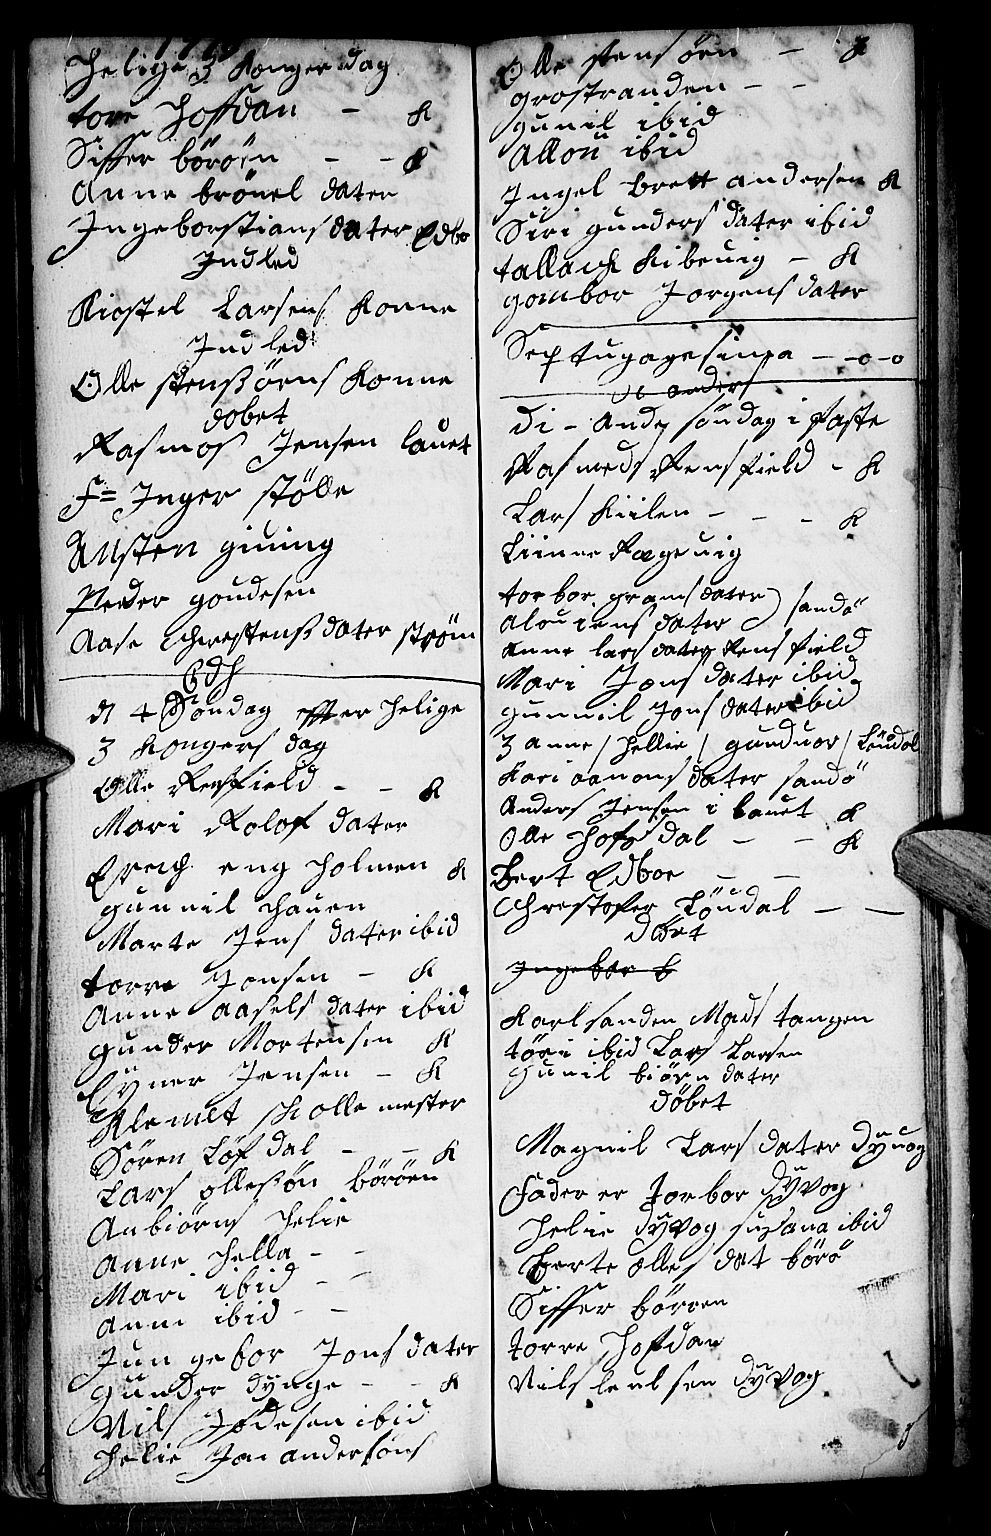 Helige 3 Konger dag
tore Hoffdan - K
Siffer böröen - - K
Anne brönel dater
Ingebor stians dater Edbo
Indled
Kiostel Larsens Konne
Indled
Olle stensßörns Konne
döbet
Rasmos Jensen lauet
F= Inger stölle
Austen giuing
Peder goudesen
Aase Chrestenß dater ström
Edh
d 4 Söndag effter Helige
3 Kongers dag
Olle Refffield - - K
Mari Rolof dater
Erech eng Holmen K
gunnil Hauen
Marte Jens dater ibid
torre Jonsen - K
Anne aasels dater ibid
gunder Mortensen K
Eyner Jensen - K
Klemet skolle mester
Sören Löfdal - - K
Lars ollesøn böröen
Anbiörns Helie
Anne Hella - -
Mari ibid - -
Anni ibid - -
Jungebor Jons dater
gunder dynge - - K
Nils Jödesen ibid
Helie Jon andersöns
Olle stensören - K
grostranden - -
gunil ibid
Allou ibid
Ingel brett andersen K
Siri gunders dater ibid
tallach Kibeuig - K
gombor Jorgens dater
Septugagesima - -o-o
di - Andz söndag i faste
Rasmeds Rensfield - K
Lars Kiilen - - - K
Liinne Hageuig
torbor grams dater
alou iens dater sandö
Anne lars dater Rensfield
Mari Jons dater ibid
gunnil Jons dater ibid
3 anne / Hellie / gunduor / Löudal
Kari aanons dater sandö
Anders Jensen i lauet K
Olle Hofsdal - - K
Bert Edboe - -
Chrestofer Löudal - -
döbt
Ingebor b
Karl sanden Mads tangen
töri ibid Lars Larsen
gunil biörn dater
döbet
Magnil Lars dater dyuog
Fader er Torbor dyvog
Helie dyvog susana ibid
Berte olles dat börö
Siffer börren
torre Hofdan
Nils leulsen dyvog